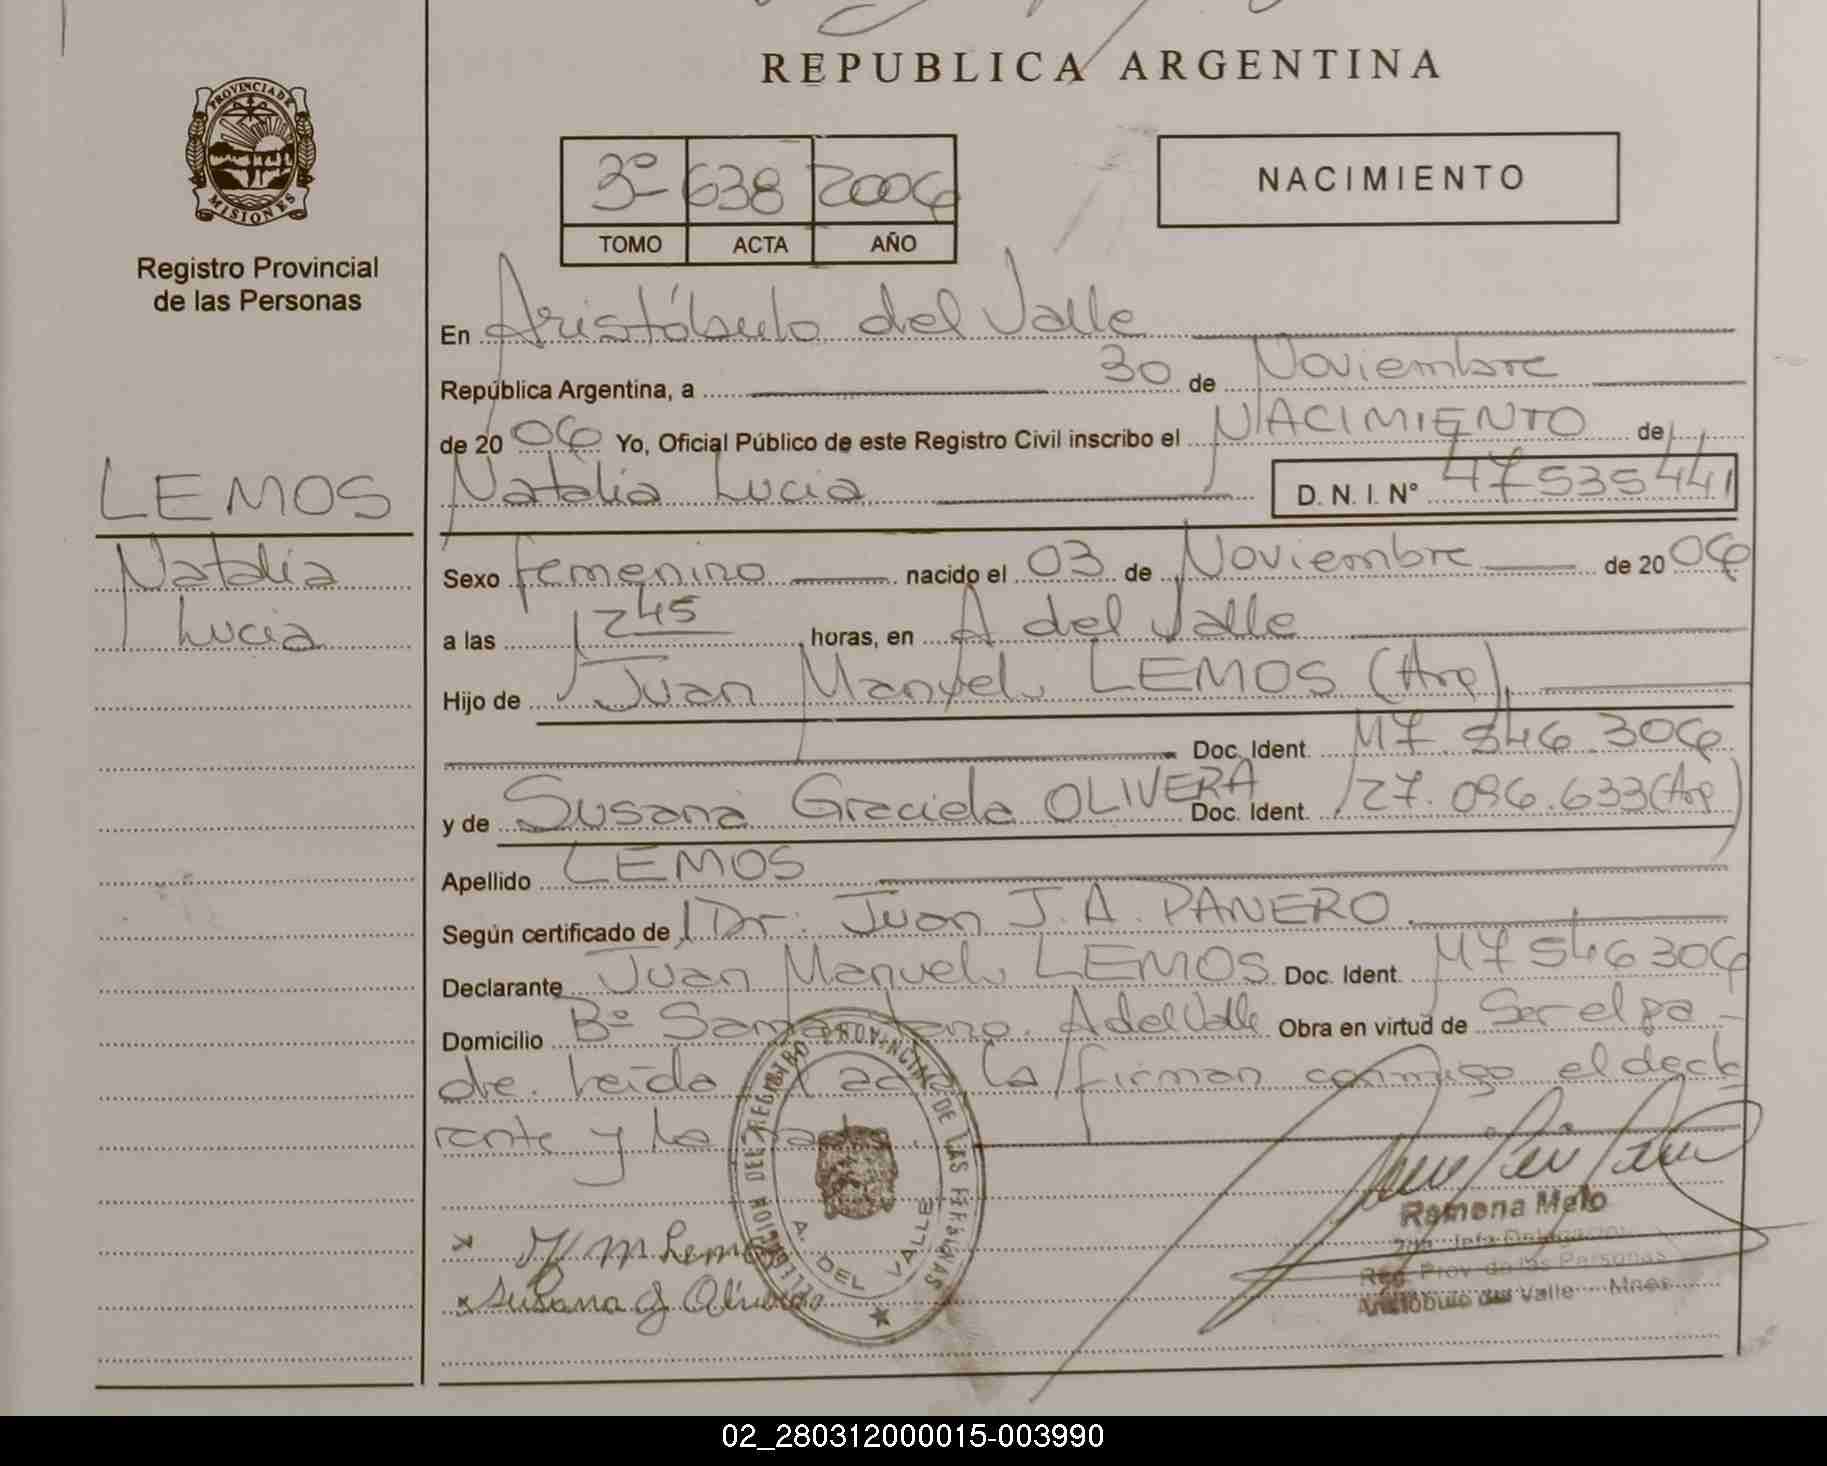 REPUBLICA ARGENTINA
PROVINCIA DE
MISIONES
Registro Provincial
de las Personas
3º 638 2006
TOMO ACTA AÑO
NACIMIENTO
En Aristóbulo del Valle
República Argentina, a 30 de Noviembre
de 2006 Yo, Oficial Público de este Registro Civil inscribo el NACIMIENTO de
Natalia Lucia D. N. I. Nº 47535441
LEMOS
Natalia
Lucia
Sexo femenino nacido el 03 de Noviembre de 2006
a las 245 horas, en A del Valle
Hijo de Juan Manuel LEMOS (Arg)
Doc. Ident. M7.546.306
y de Susana Graciela OLIVERA Doc. Ident. 27.096.633 (Arg)
Apellido LEMOS
Según certificado de Dr. Juan J. A. PANERO
Declarante Juan Manuel LEMOS Doc. Ident. M7546306
Domicilio Bº A del Valle Obra en virtud de Ser el pa-
dre. Leída el acta la firman conmigo el decla
rante y la madre.
DEL REGISTRO PROVINCIAL DE LAS PERSONAS
A. DEL VALLE
x J M Lemos
x Susana G Olivera
Ramona Melo
2da. Jefa Delegacion
Reg. Prov. de las Personas
Aristóbulo del Valle - Mnes.
02_280312000015-003990